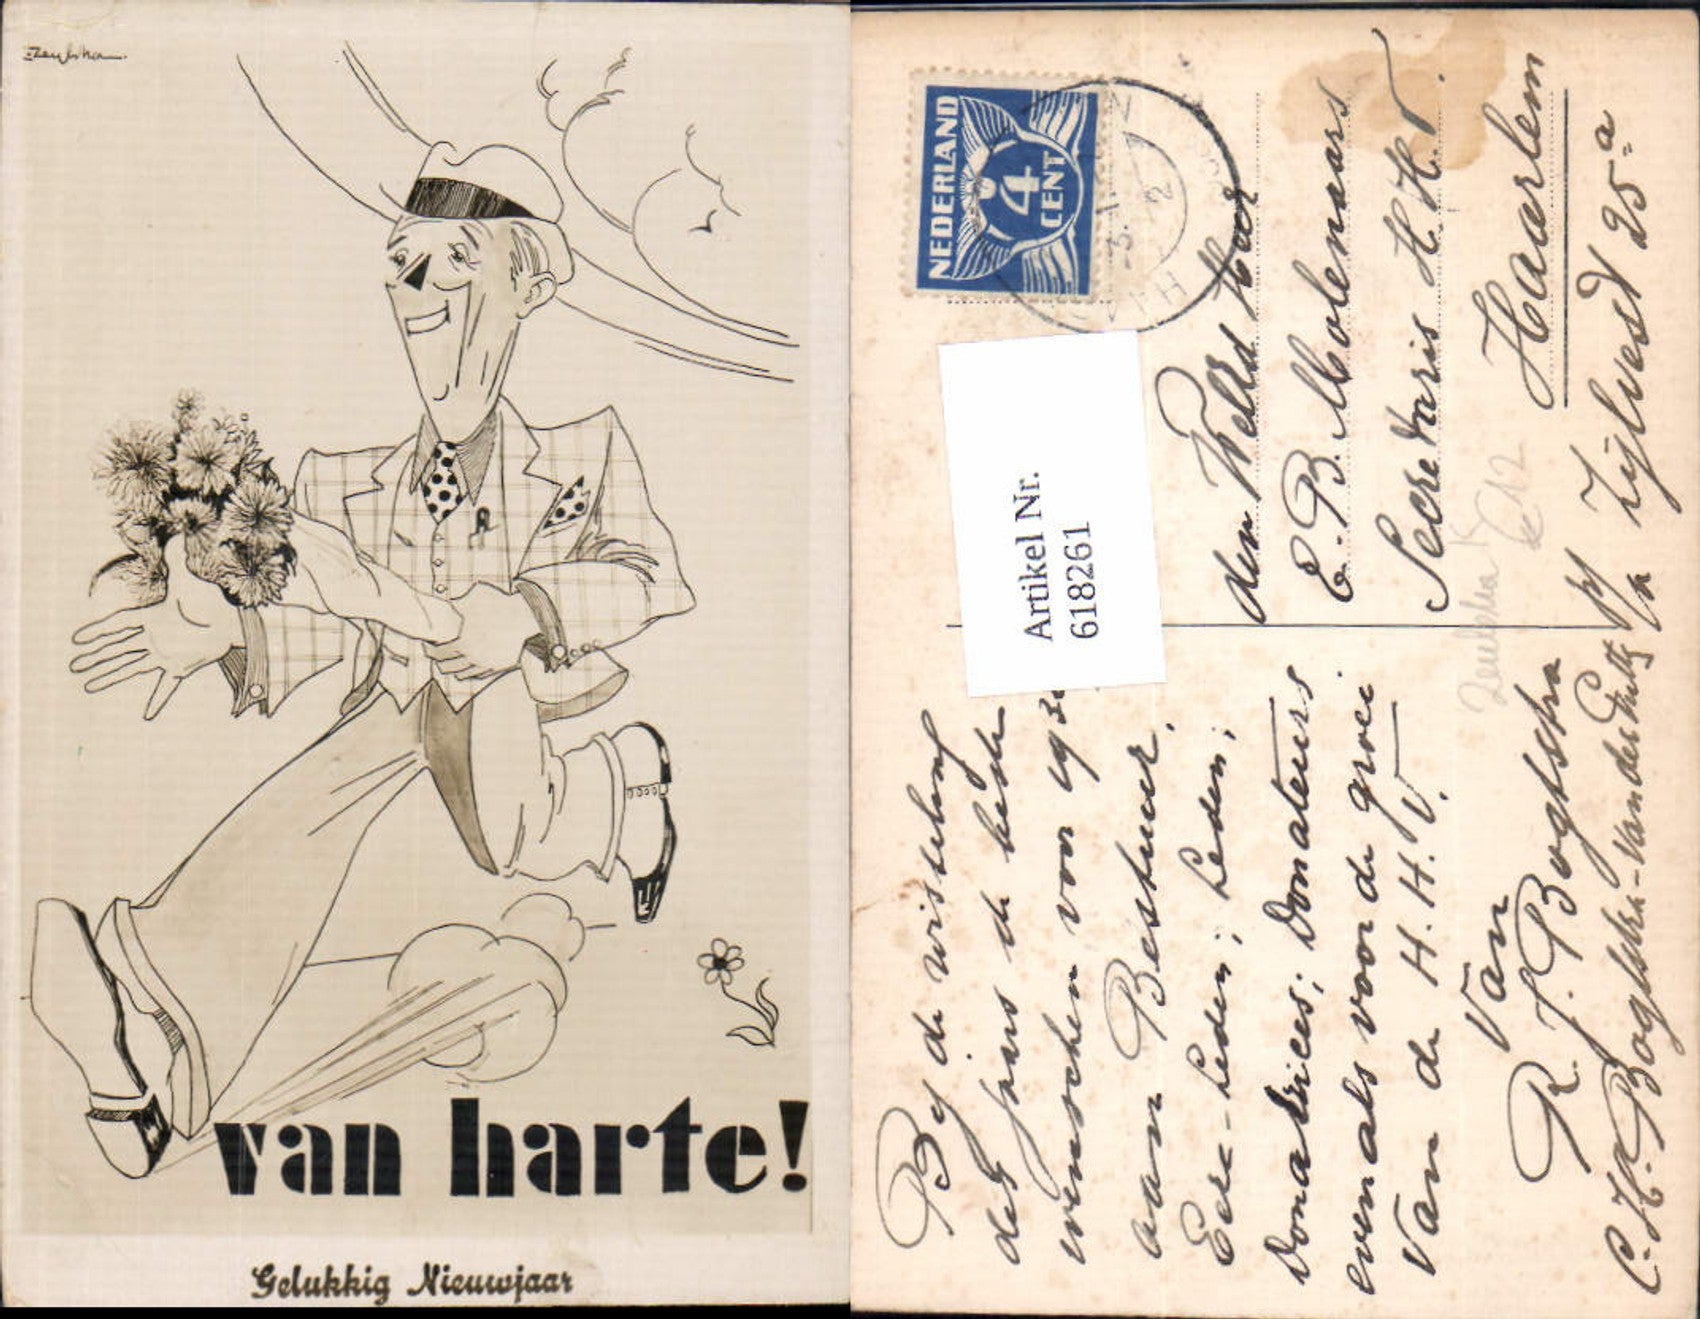 Zeulstra
van harte!
Gelukkig Nieuwjaar
NEDERLAND
4
CENT
Artikel Nr.
618261
den WelEd Heer
E. B. Molenaars
Secretaris H. H. V.
Haarlem
Zijlvest 25ᵃ
By de wisseling
des jaars de beste
wenschen voor 193
aan Bestuur.
Eere-Leden; Leden;
Donatrices; Donateurs
evenals voor de groei
van de H. H. V.
van
R. J. Bogtstra
C. H. Bogtstra-van der